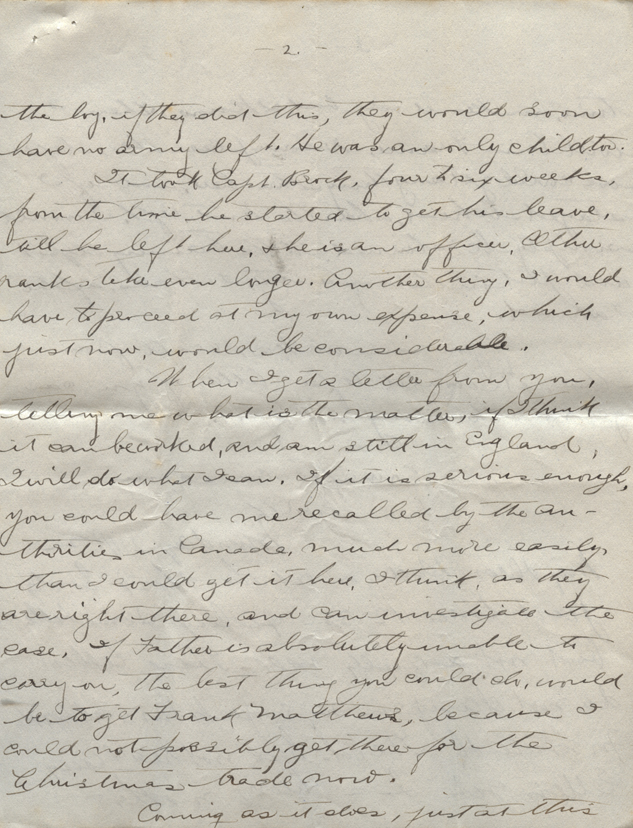 - 2. -
the boy, if they did this, they would soon
have no army left. He was an only child too.
It took Capt. Brock, four to six weeks,
from the time he started to get his leave,
till he left here, & he is an officer, Other
ranks take even longer. Another thing, I would
have to proceed at my own expense, which
just now, would be considerable.
When I get a letter from you,
telling me what is the matter, if I think
it can be worked, and am still in England,
I will do what I can. If it is serious enough,
you could have me recalled by the au-
thrities in Canada, much more easily,
than I could get it here, I think, as they
are right there, and can investigate the
case. If Father is absolutely unable to
carry on, the best thing you could do, would
be to get Frank Matthews, because I
could not possibly get there for the
Christmas trade now.
Coming as it does, just at this